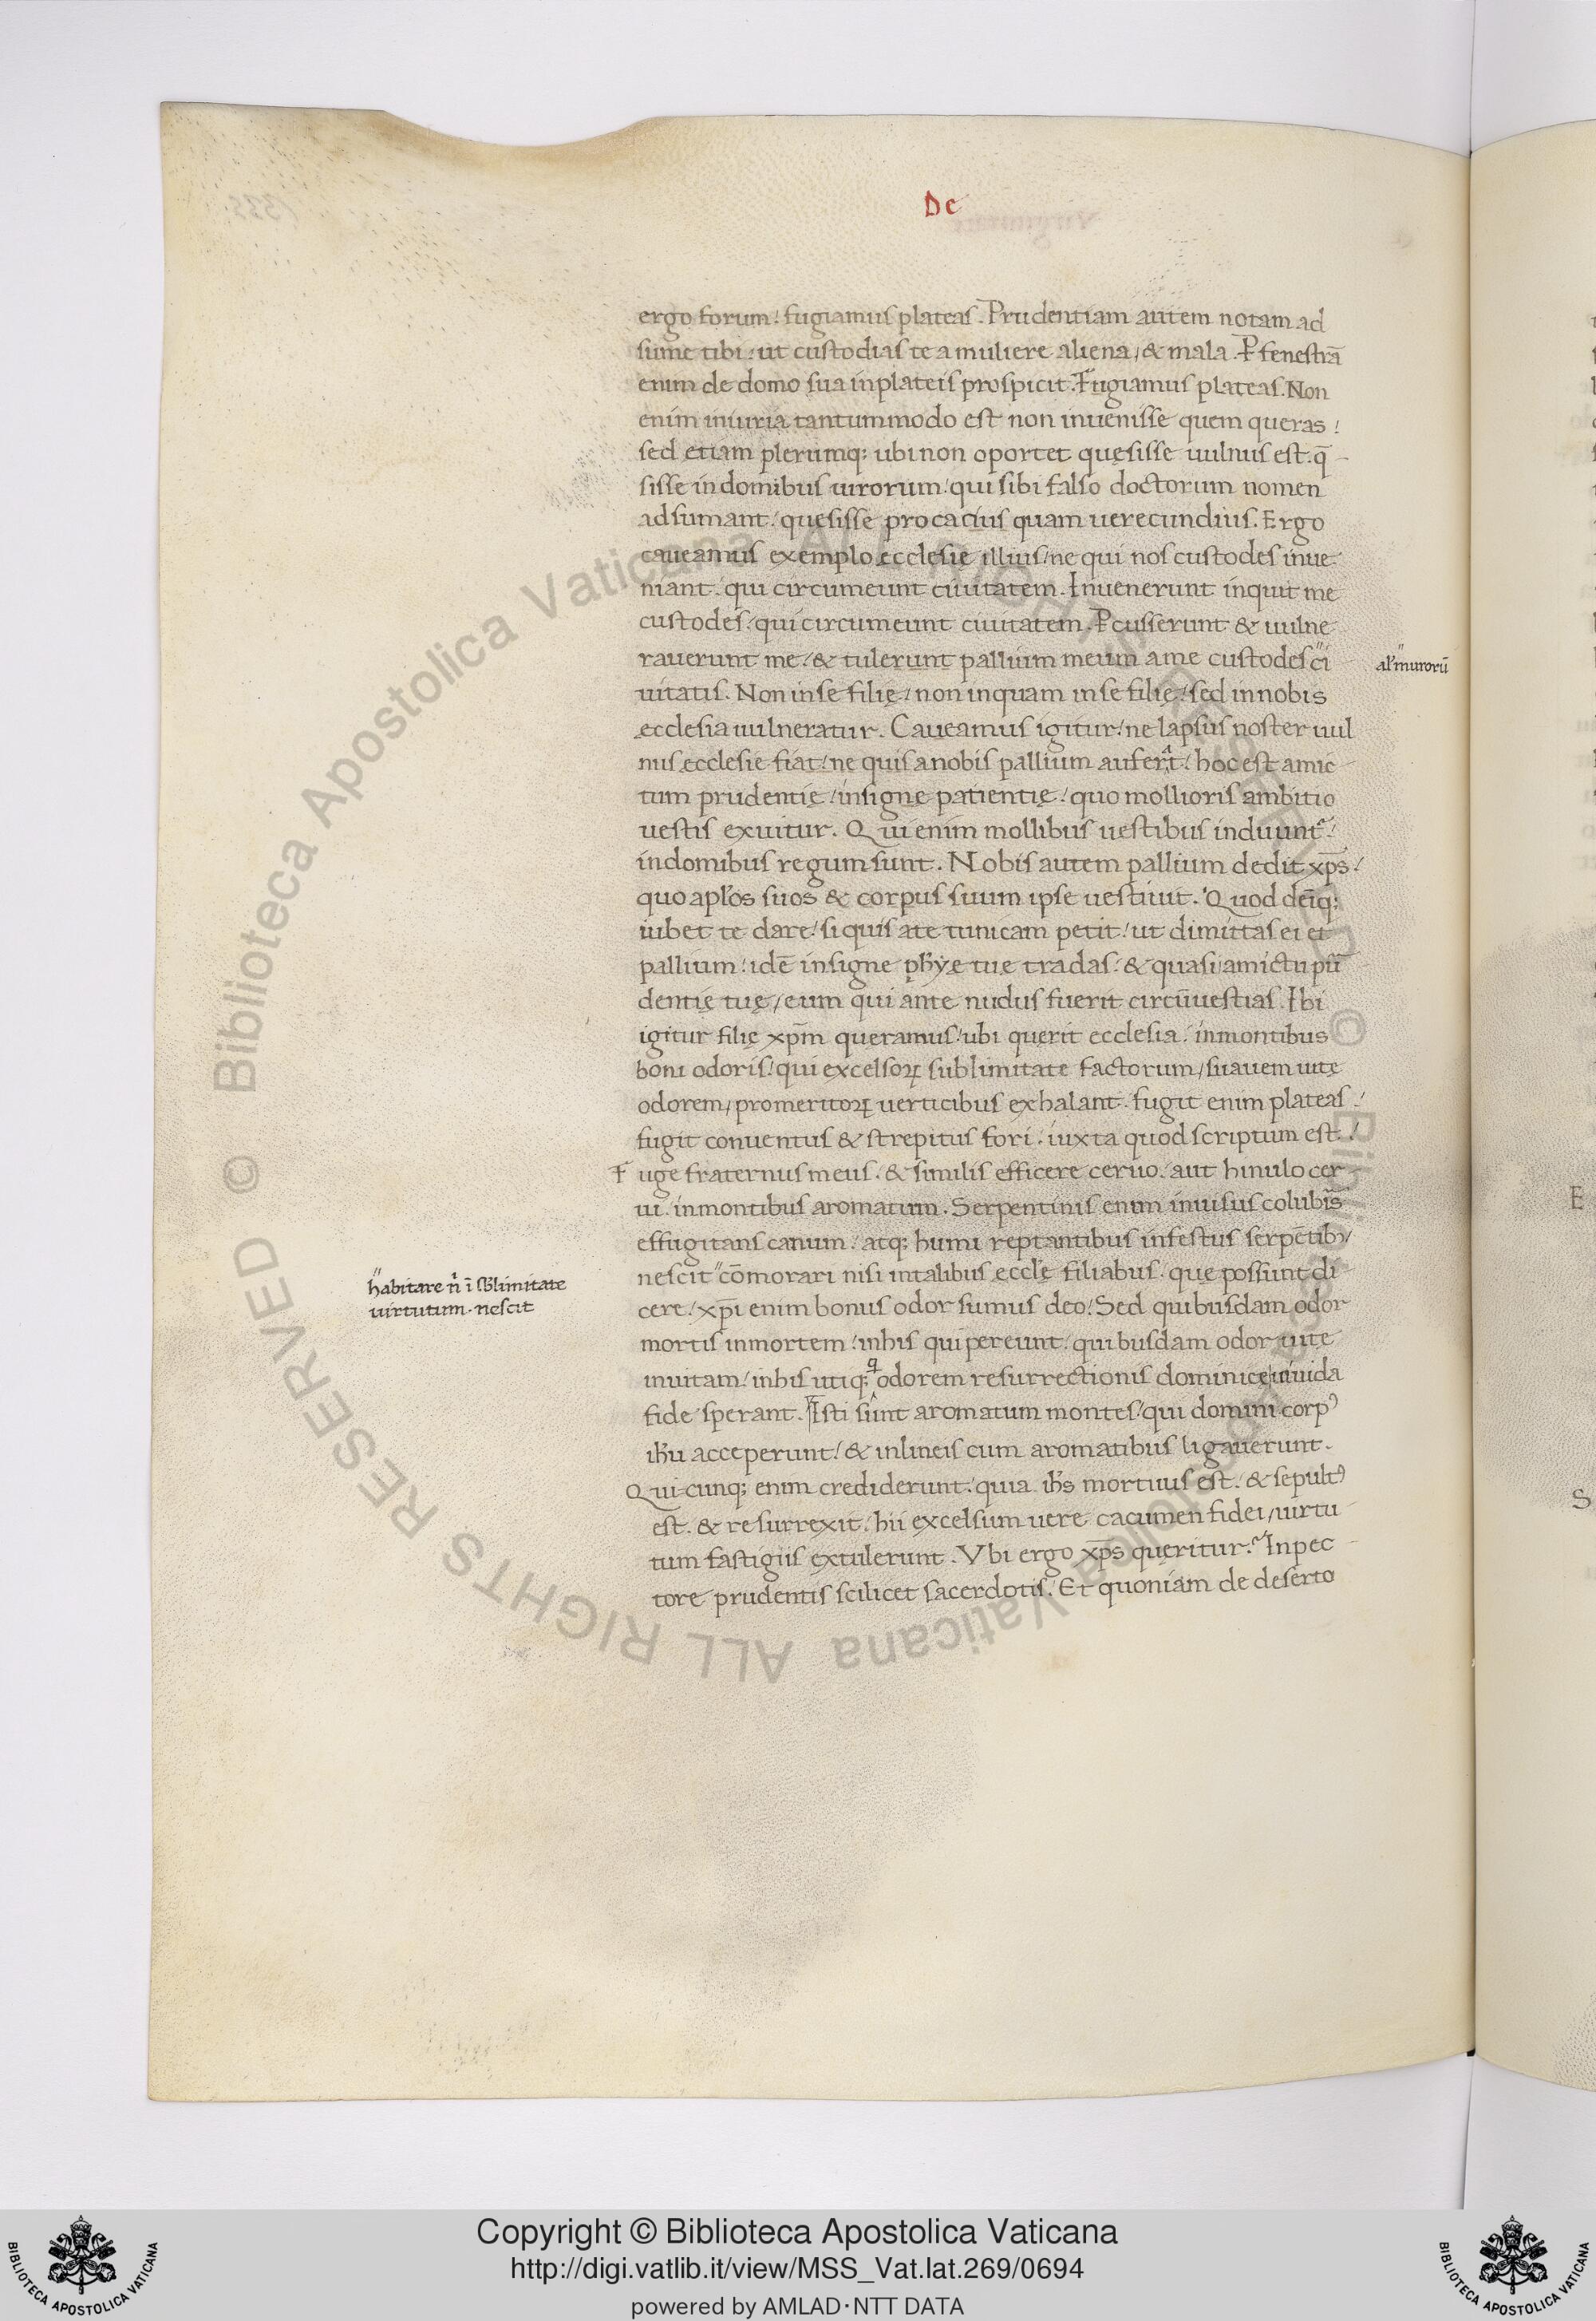 De
ergo forum! fugiamus plateas. Prudentiam autem notam ad
sume tibi! ut custodias te a muliere aliena, & mala. P̱ fenestrā
enim de domo sua inplateis prospicit. Fugiamus plateas. Non
enim iniuria tantummodo est non inuenisse quem queras!
sed etiam plerumq; ubi non oportet quęsisse uulnus est. q̄
sisse indomibus uirorum! qui sibi falso doctorum nomen
adsumant! quęsisse procacius quam uerecundius. Ergo
caueamus exemplo ecclesię illius! ne qui nos custodes inue
niant! qui circumeunt ciuitatem. Inuenerunt inquit me
custodes! qui circumeunt ciuitatem. P̱cusserunt & uulne
rauerunt me! & tulerunt pallium meum ame custodes "ci
al' "murorū
uitatis. Non inse filię! non inquam inse filię! sed innobis
ecclesia uulneratur. Caueamus igitur! ne lapsus noster uul
nus ecclesie fiat! ne quis anobis pallium auferat! hoc est amic
tum prudentię! insigne patientię! quo mollioris ambitio
uestis exuitur. Qui enim mollibus uestibus induunt᷑!
indomibus regum sunt. Nobis autem pallium dedit xp̄s!
quo apl'os suos & corpus suum ipse uestiuit. Quod deīq;
iubet te dare! si quis ate tunicam petit! ut dimittas ei et
pallium! idē insigne ph'yę tuę tradas! & quasi amictu pū
dentię tuę, eum qui ante nudus fuerit circūuestias. Ibi
igitur filię xp̄m queramus! ubi quęrit ecclesia! inmontibus
boni odoris! qui excelsoꝝ sublimitate factorum, suauem uitę
odorem, promeritoꝝ uerticibus exhalant. fugit enim plateas!
fugit conuentus & strepitus fori! iuxta quod scriptum est!
Fuge fraternus meus! & similis efficere ceruo! aut hinulo cer
ui! inmontibus aromatum. Serpentinis enim inuisus colubīs
effugitans canum! atq; humi reptantibus infestus serpētib,
nescit "cōmorari nisi intalibus eccl'ę filiabus! quę possunt di
"habitare n̂ ī sb'limitate
uirtutum. nescit
cere! xp̄i enim bonus odor sumus deo! Sed quibusdam odor
mortis inmortem! inhis qui pereunt! quibusdam odor uitę
inuitam! inhis utiq; q odorem resurrectionis dominicę uiuida
fide sperant. Isti sunt aromatum montes! qui domini corpꝰ
ih'u acceperunt! & inlineis cum aromatibus ligauerunt.
Qui cunq; enim crediderunt! quia ih's mortuus est! & sepultꝰ
est. & resurrexit! hii excelsum uere cacumen fidei, uirtu
tum fastigiis extulerunt. Vbi ergo xp̄s quęritur? Inpec
tore prudentis scilicet sacerdotis! Et quoniam de deserto
Copyright © Biblioteca Apostolica Vaticana
http://digi.vatlib.it/view/MSS_Vat.lat.269/0694
powered by AMLAD·NTT DATA
BIBLIOTECA APOSTOLICA VATICANA
BIBLIOTECA APOSTOLICA VATICANA
© Biblioteca Apostolica Vaticana ALL RIGHTS RESERVED © Biblioteca Apostolica Vaticana ALL RIGHTS RESERVED